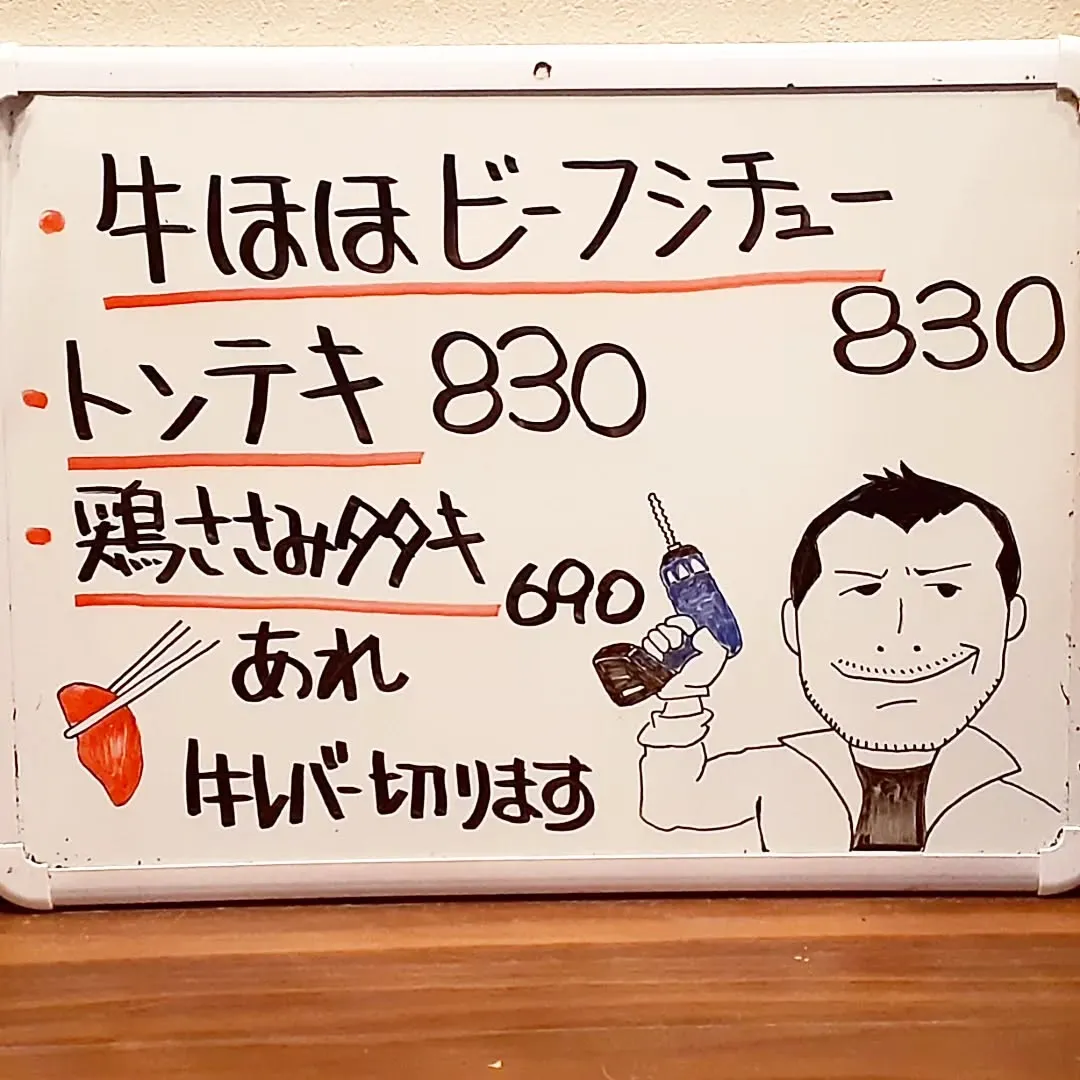 ・牛ほほビーフシチュー
830
・トンテキ 830
・鶏ささみタタキ
690
あれ
牛レバー切ります